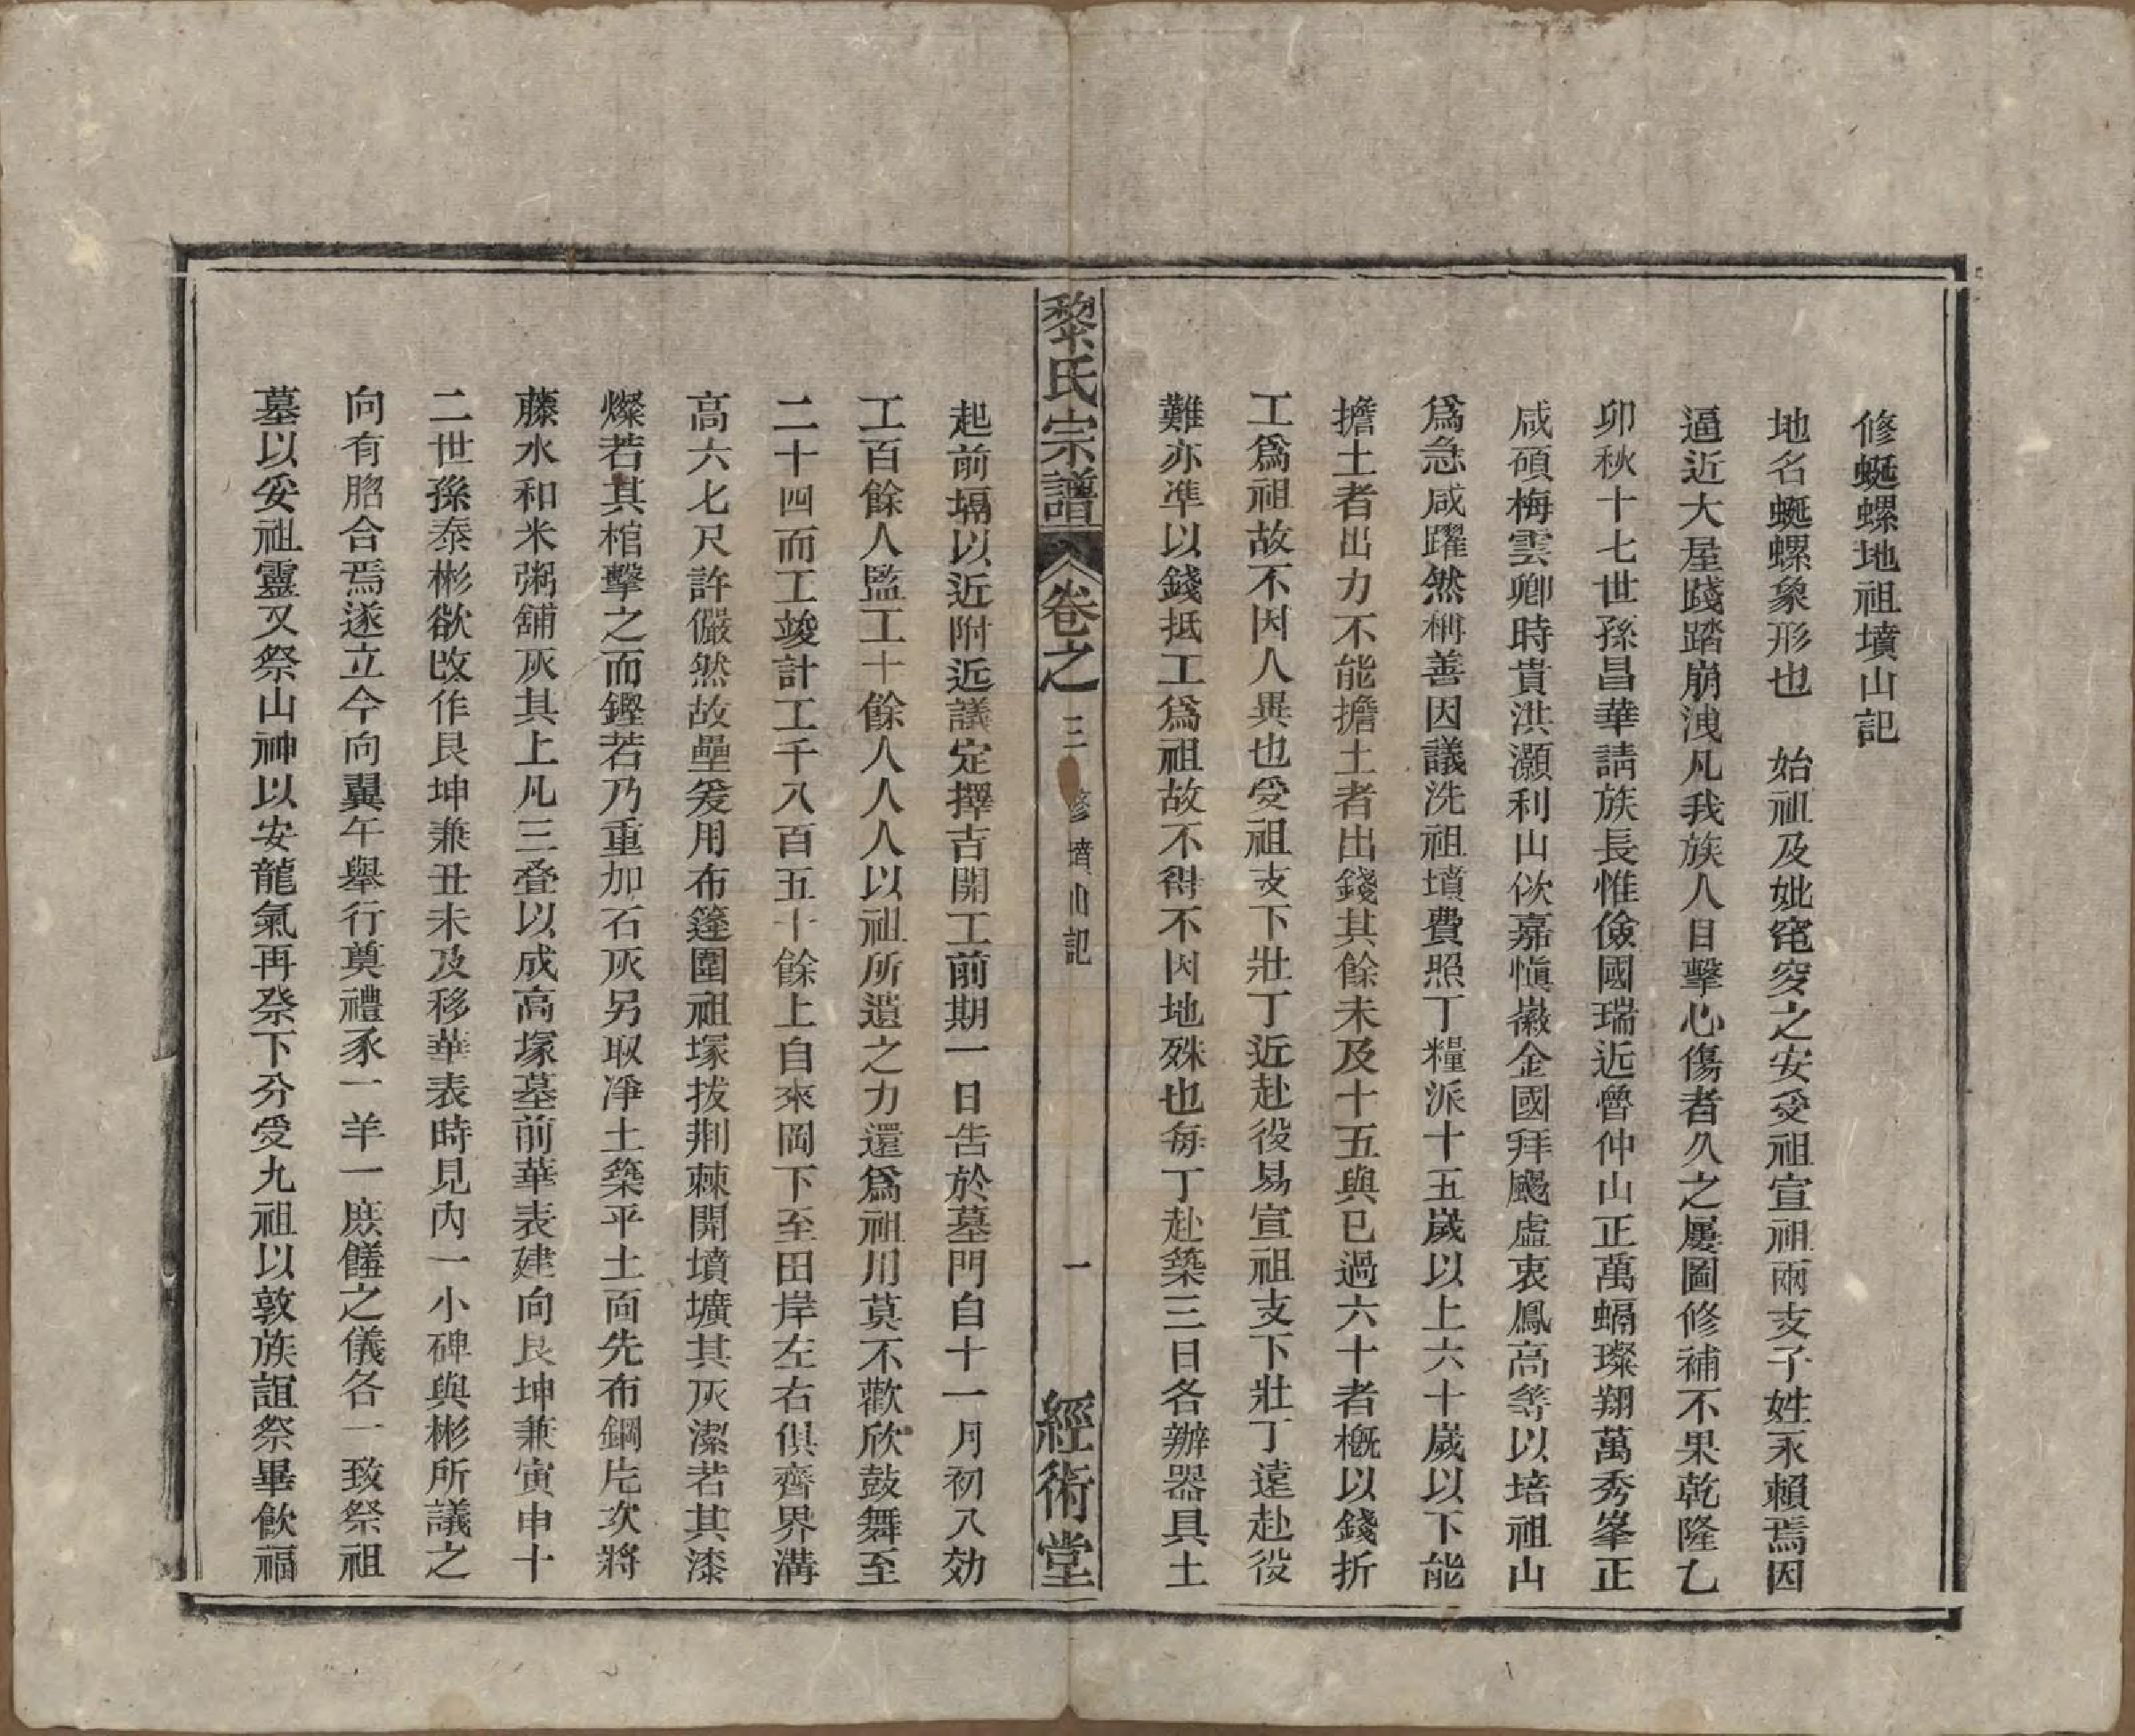 修蜒螺地祖墳山記
地名蜒螺象形也　始祖及妣窀穸之安受祖宣祖兩支子姓永賴焉因
逼近大屋踐踏崩洩凡我族人目擊心傷者久之屢圖修補不果乾隆乙
卯秋十七世孫昌華請族長惟儉國瑞近魯仲山正萬蝸璨翔萬秀峯正
咸碩梅雲卿時貴洪灝利山佽嘉慎嶶金國拜颺虛衷鳳高等以培祖山
爲急咸躍然稱善因議洗祖墳費照丁糧派十五歲以上六十歲以下能
擔土者出力不能擔土者出錢其餘未及十五與已過六十者槪以錢折
工爲祖故不因人異也受祖支下壯丁近赴役易宣祖支下壯丁遠赴役
難亦準以錢抵工爲祖故不得不因地殊也每丁赴築三日各辦器具土
黎氏宗譜　卷之　三　修墳山記　一　經術堂
起前塥以近附近議定擇吉開工前期一日告於墓門自十一月初八効
工百餘人監工十餘人人人以祖所遺之力還爲祖用莫不歡欣鼓舞至
二十四而工竣計工千八百五十餘上自來岡下至田岸左右俱齊界溝
高六七尺許儼然故壘爰用布篷圍祖塚拔荆棘開墳壙其灰潔若其漆
燦若其棺擊之而鏗若乃重加石灰另取凈土築平土面先布鋼片次將
藤水和米粥舖灰其上凡三叠以成高塚墓前華表建向艮坤兼寅申十
二世孫泰彬欲改作艮坤兼丑未及移華表時見內一小碑與彬所議之
向有脗合焉遂立今向翼午舉行奠禮豕一羊一庶饈之儀各一致祭祖
墓以妥祖靈又祭山神以安龍氣再祭下分受九祖以敦族誼祭畢飮福